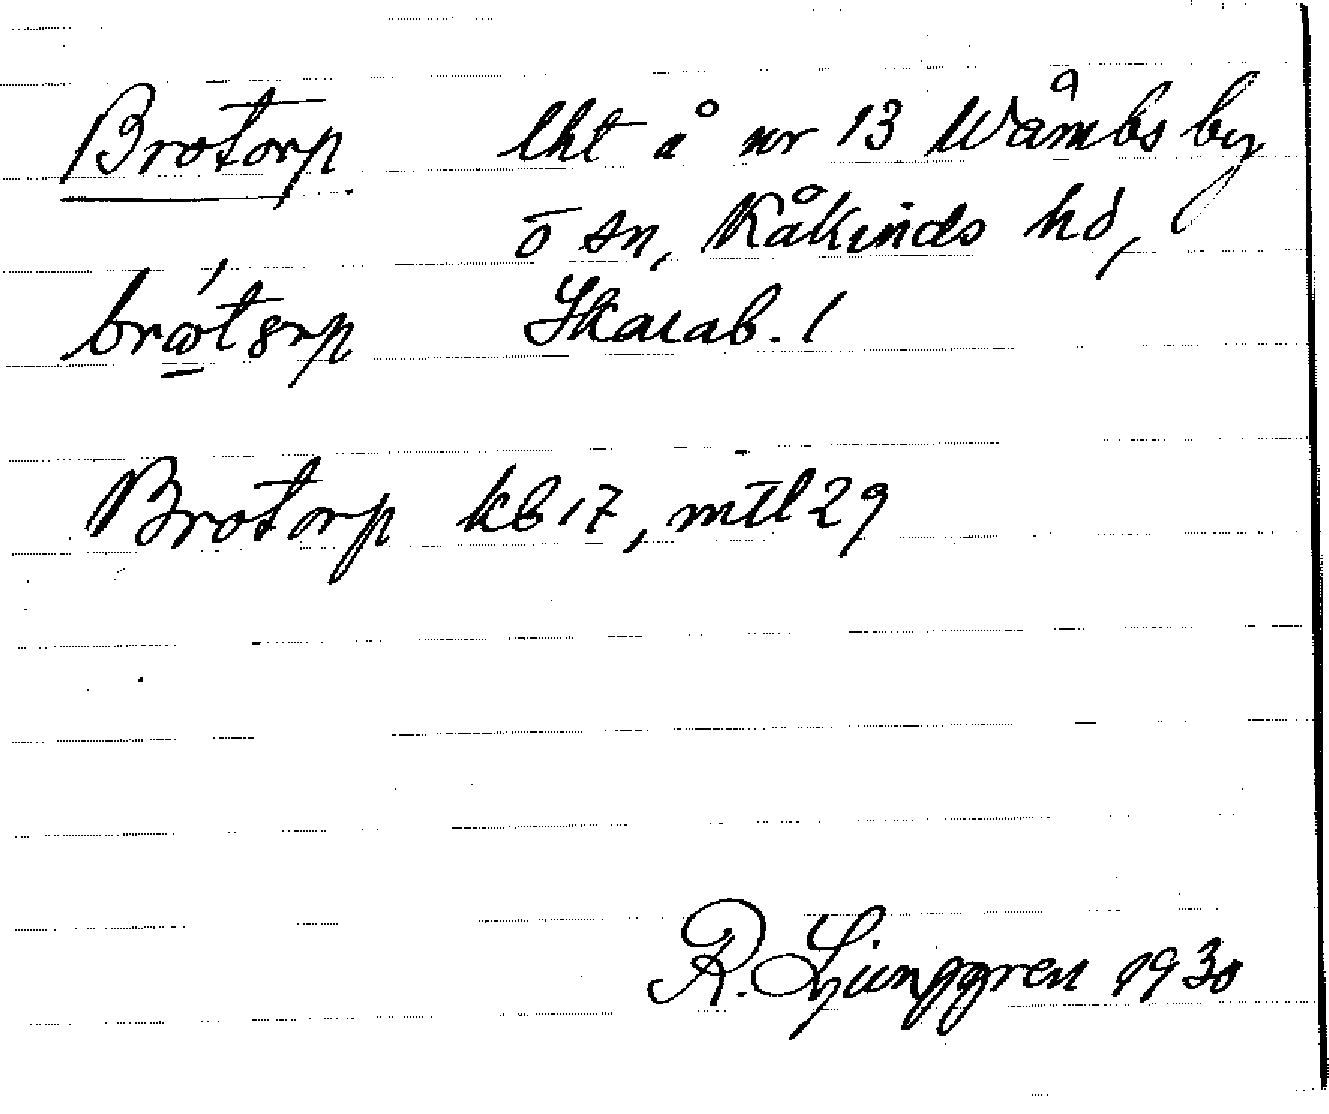 Brotorp lht å nr 13 Wåmbs by
o sn, Kåkinds hd,
Skarab. l
Brotorp kb 17, mtl 29
R. Ljunggren 1930